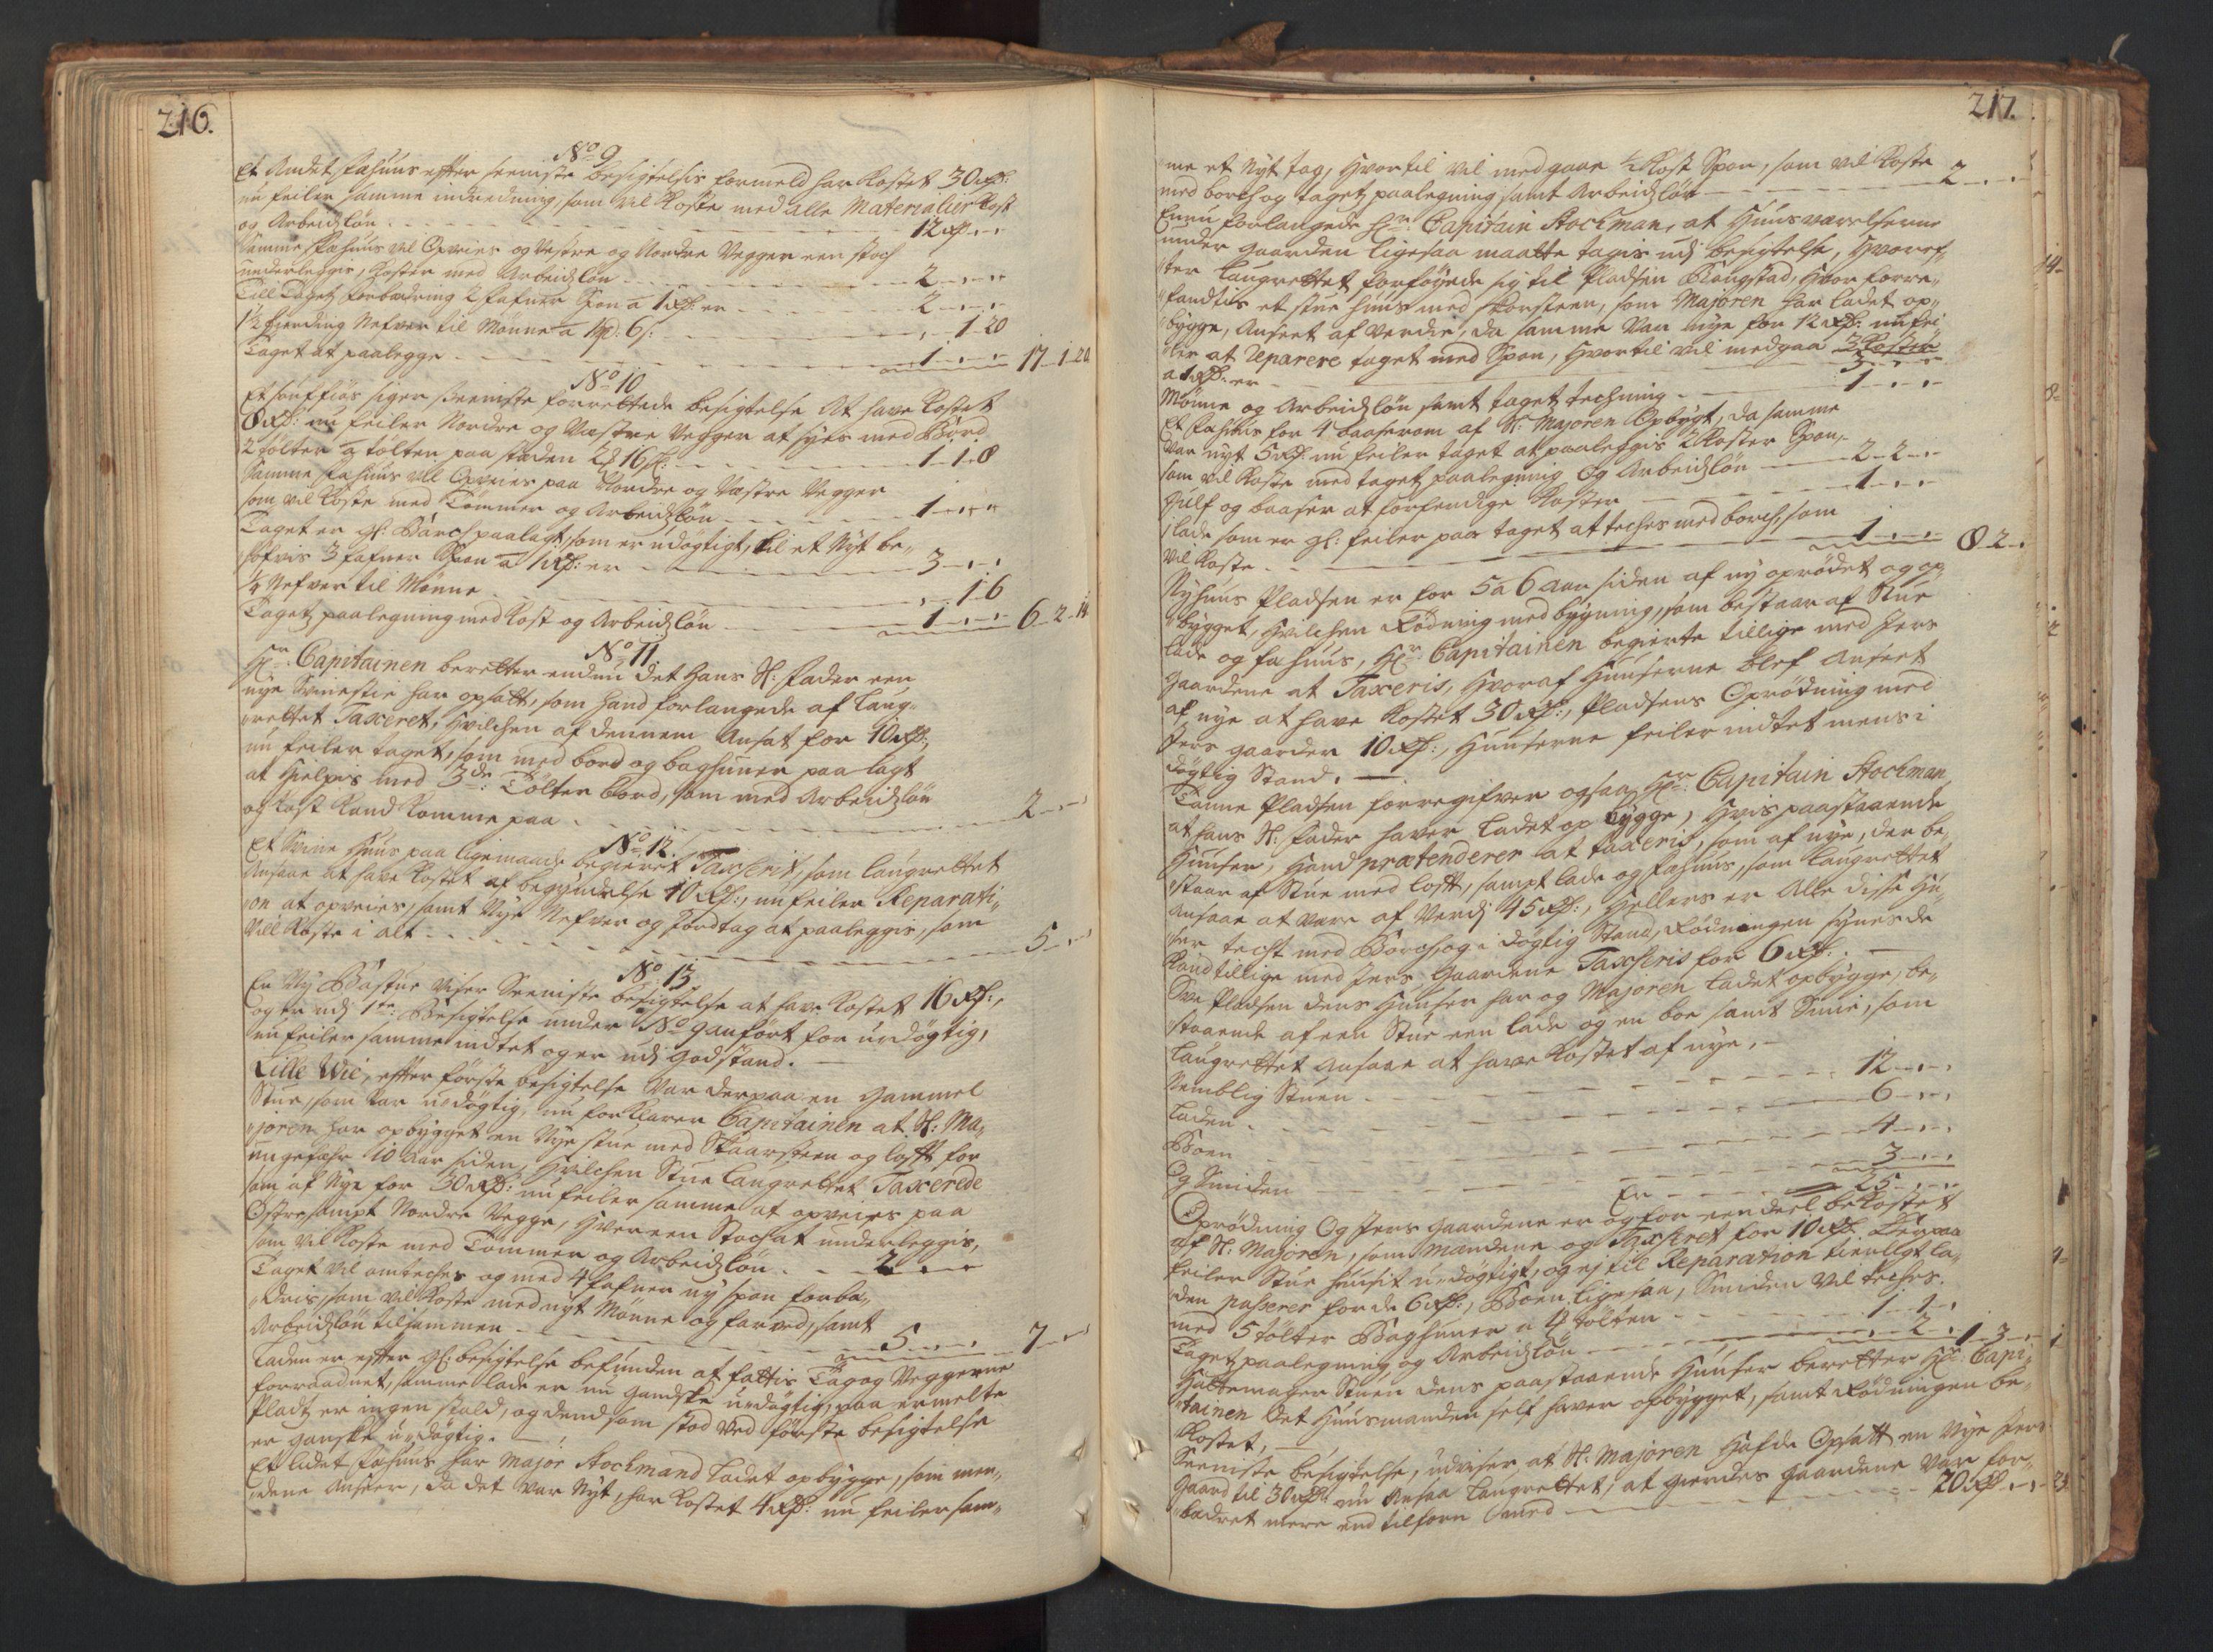 216.
No 9
Et Andet Fæhuus effter seeniste besigtelsis formeld har kostet 30 Rd:
nu feiler samme indredning, som vil koste med alle Materialier kost
og Arbeidzløn 12 Rd
Samme Fæhuus vil Opveies og Vestre og Nordre Vegger een stoch
underleggis, koster med Arbeidzløn 2
Till Tagetz forbædring 2 Fafner Spon a 1 Rd: er 2
1½ fierding Nefver til Mønne a 1 : 6 s: 1 - 20
Taget at paalegge 1 17 - 1 - 20
No 10
Et siger seeniste forrettede besigtelse At have kostet
8 Rd: nu feiler Nordre og Vestre Vegger at syes med Bord
2 tolter a tolten paa staden 2 16 s: 1 - 1 - 8
Samme Fæhuus vil Opveies paa Nordre og Vestre Vegger
som vil koste med Tømmer og Arbeidzløn 1
Taget er gl: Barch paalagt, som er udøgtigt, til et Nyt be„
høfvis 3 fafner Spon a 1 Rd: er 3
¼ Nefver til Mønne 1 6
Tagetz paalegning med kost og Arbeidzløn 1 6 - 2 - 14
No 11
Hr: Capitainen beretter endnu det hans Sl: Fader een
nye Sviinestie har opsatt, som hand forlangede af Laug„
rettet Taxeret, hvilchen af dennem Ansat for 10 Rd:,
nu feiler taget, som med bord og baghuner paa lagt
at hielpis med 3de: Tolter bord, som med Arbeidzløn
og kost kand komme paa 2
No 12.
Et Sviine Huus paa ligemaade begieret Taxserit, som laugrettet
Ansaae at have kostet af begyndelse 10 Rd:, nu feiler Reparati„
on at opveies, samt Nye Nefver og Jordtag at paaleggis, som
vill koste i alt 5
No 13
En Ny Badstue viser Seeniste besigtelse at have kostet 16 Rd:,
og er udj 1te: Besigtelse under No 9 anført for udøgtig,
nu feiler samme indtet og er udj god stand.
Lille Wie, effter første besigtelse var derpaa en gammel
Stue, som var udøgtig, nu forklarer Capitainen at Sl: Ma„
joren har opbygget en Nye stue med Skaarsteen og lofft for
ungefæhr 10 Aar siden, hvilchen Stue laugrettet Taxerede
som af Nye for 30 Rd: nu feiler samme at opveies paa
Østre sampt Nordre Vegge, hver een Stoch at underleggis,
som vil koste med Tømmer og Arbeidzløn 2
Taget vil omteches og med 4 fafner ny spon forbæ„
dris, som vil koste med nyt Mønne og farved, samt
Arbeidzløn tilsammen 5 7
Laden er effter gl: besigtelse befunden at fattis Tag og Veggerne
forraadnet, samme lade er nu gandske udøgtig, paa ermelte
Pladz er ingen stald, og dend som stod ved første besigtelse
er ganske udøgtig.
Et lidet Fæhuus har Major Stochmand ladet opbygge, som men„
dene Anseer, da det var Nyt, har kostet 4 Rd: nu feiler sam„
217.
me et Nyt tag, hvortil vil medgaae ½ Kost Spon, som vil koste
med borch og tagetz paalegning samt Arbeidzløn 2
Enu forlangede Hr: Capitain Stochman, at Huusværelserne
under gaarden ligesaa maatte tages udj besigtelse, hvoref„
ter laugrettet forføyede sig til Pladsen Klaugstad, hvor forre„
fandtis et stue huus med skorsteen, som Majoren har ladet op„
bygge, Anseet af verdie, da samme var nye for 12 Rd: nu fei
ler at Reparere taget med Spon, hvortil vil medgaa
a 1 Rd: er 3
Mønne og Arbeidzløn samt taget techning 1
Et Fæhuus for 4 baaserom af Sl: Majoren Opbygt, da samme
var nyt 5 Rd: nu feiler taget at paaleggis 2 Koster Spon,
som vil koste med tagetz paalegning og Arbeidzløn 2 - 2
Gulf og baaser at forferdige koster 1
Lade som er gl: feiler paa taget at teches med borch, som
vil koste 1 8 - 2
Nyhuus Pladsen er for 5 a 6 Aar siden af ny oprødet og op„
bygget, hvilchen Rødning med bygning, som bestaar af Stue
lade og fæhuus, Hr: Capitainen begierte tillige med Jers
gaardene at Taxeris, hvoraf Huuserne blef Anseet
af nye at have kostet 30 Rd:, Pladsens Oprødning med
Jers gaarder 10 Rd:, Huuserne feiler indtet mens i
døgtig Stand.
Tanne Pladsen forregifver ogsaa Hr: Capitain Stochman,
at hans Sl: Fader haver ladet opbygge, hvis paastaaende
Huuser, hand prætenderer at taxeris, som af nye, der be„
staar af Stue med lofft, sampt lade og fæhuus, som laugrettet
Ansaae at være af Verdj 45 Rd:, Hellers er Alle disse hu„
ser techt med Borch, og i døgtig Stand, Rødningen synes de
kand tillige med Jers Gaardene Taxseris for 6 Rd:
Svee Pladsen dens Huuser har og Majoren ladet opbygge, be„
staaende af een Stue een lade og en boe samt Smie, som
laugrettet Ansaae at have kostet af nye,
Nemblig Stuen 12
Laden 6
Boen 4
Og Smiden 3
Er 25
Oprødning Og Jers gaardene er og for een deel bekostet
af Sl: Majoren, som mændene og Taxseret for 10 Rd. Derpaa
feiler Stue huusit udøgtigt, og ej til Reparation tienligt la„
den passerer for de 6 Rd:, Boen ligesaa, Smiden vil teches.
med 5 tolter Baghuner a 4 tolten 1 - 1
Tagetz paalegning og Arbeidzløn 2 1 - 3
Hattemager Stuen dens paastaaende Huuser beretter Hr: Capi„
tainen det Huusmanden self haver opbygget, samt Rødningen be„
kostet,
Seeniste besigtelse, udviser, at Sl: Majoren hafde Opsatt en Nye Jers
gaard til 30 Rd: nu Ansaae laugrettet, at gierdes gaardene var for„
bædret mere end tilforn med 20 Rd